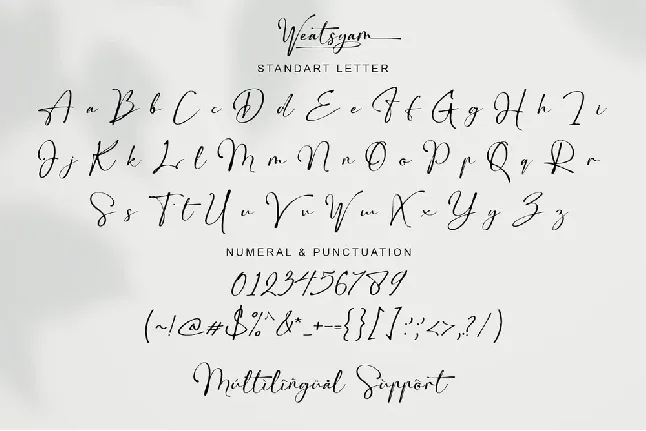 Weatsyam
STANDART LETTER
A a B b C c D d E e F f G g H h I i
J j K k L l M m N n O o P p Q q R r
S s T t U u V v W w X x Y y Z z
NUMERAL & PUNCTUATION
0123456789
(~!@#$%^&*_+-={}[]:;'<>,?/)
Multilingual Support